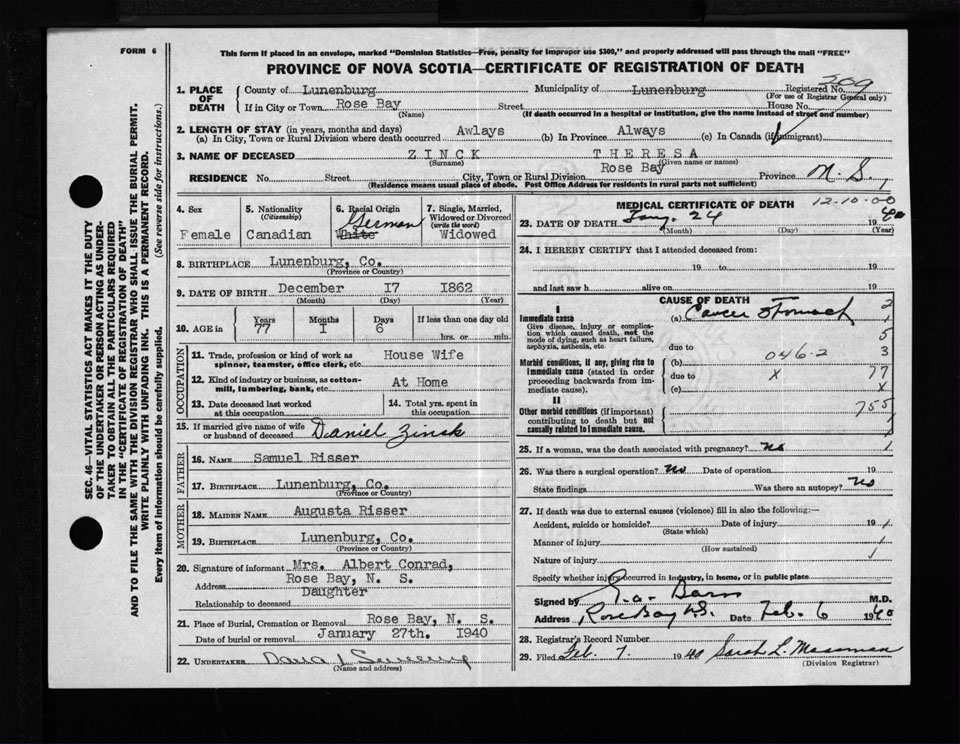 FORM 6
This form if placed in an envelope, marked "Dominion Statistics—Free, penalty for improper use $300," and properly addressed will pass through the mail "FREE"
PROVINCE OF NOVA SCOTIA—CERTIFICATE OF REGISTRATION OF DEATH
309
1. PLACE OF DEATH County of Lunenburg Municipality of Lunenburg Registered No.
(For use of Registrar General only)
If in City or Town Rose Bay Street House No.
(Name) (If death occurred in a hospital or institution, give the name instead of street and number)
2. LENGTH OF STAY (in years, months and days)
(a) In City, Town or Rural Division where death occurred Awlays (b) In Province Always (c) In Canada (if immigrant)
3. NAME OF DECEASED ZINCK THERESA
(Surname) (Given name or names)
RESIDENCE No. Street City, Town or Rural Division Rose Bay Province N. S.
(Residence means usual place of abode. Post Office Address for residents in rural parts not sufficient)
4. Sex Female
5. Nationality (Citizenship) Canadian
6. Racial Origin German White
7. Single, Married, Widowed or Divorced (write the word) Widowed
8. BIRTHPLACE Lunenburg, Co.
(Province or Country)
9. DATE OF BIRTH December 17 1862
(Month) (Day) (Year)
10. AGE in Years 77 Months 1 Days 6 If less than one day old
hrs. or min.
OCCUPATION
11. Trade, profession or kind of work as spinner, teamster, office clerk, etc. House Wife
12. Kind of industry or business, as cotton-mill, lumbering, bank, etc. At Home
13. Date deceased last worked at this occupation
14. Total yrs. spent in this occupation
15. If married give name of wife or husband of deceased Daniel Zinck
FATHER
16. NAME Samuel Risser
17. BIRTHPLACE Lunenburg, Co.
(Province or Country)
MOTHER
18. MAIDEN NAME Augusta Risser
19. BIRTHPLACE Lunenburg, Co.
(Province or Country)
20. Signature of informant Mrs. Albert Conrad,
Address Rose Bay, N. S.
Relationship to deceased Daughter
21. Place of Burial, Cremation or Removal Rose Bay, N. S.
Date of burial or removal January 27th. 1940
22. UNDERTAKER
(Name and address)
MEDICAL CERTIFICATE OF DEATH
12-10-00
23. DATE OF DEATH Jany. 24 1940
(Month) (Day) (Year)
24. I HEREBY CERTIFY that I attended deceased from:
19 to 19
and last saw h alive on 19
CAUSE OF DEATH
I
Immediate cause (a) Cancer Stomach
Give disease, injury or complication which caused death, not the mode of dying, such as heart failure, asphyxia, asthenia, etc.
due to
Morbid conditions, if any, giving rise to immediate cause (stated in order proceeding backwards from immediate cause).
(b) 046.2
due to X
(c)
II
Other morbid conditions (if important) contributing to death but not causally related to immediate cause.
2
1
5
3
77
X
755
25. If a woman, was the death associated with pregnancy? No
26. Was there a surgical operation? No Date of operation 19
State findings Was there an autopsy? No
27. If death was due to external causes (violence) fill in also the following:—
Accident, suicide or homicide? Date of injury 19
(State which)
Manner of injury
(How sustained)
Nature of injury
Specify whether injury occurred in industry, in home, or in public place
Signed by M.D.
Address Rose Bay N.S. Date Feb. 6 1940
28. Registrar's Record Number
29. Filed Feb. 7. 1940 Sarah L. Mossman
(Division Registrar)
SEC. 46—VITAL STATISTICS ACT MAKES IT THE DUTY
OF THE UNDERTAKER OR PERSON ACTING AS UNDER-
TAKER TO OBTAIN ALL THE PARTICULARS REQUIRED
IN THE "CERTIFICATE OF REGISTRATION OF DEATH"
AND TO FILE THE SAME WITH THE DIVISION REGISTRAR WHO SHALL ISSUE THE BURIAL PERMIT.
WRITE PLAINLY WITH UNFADING INK. THIS IS A PERMANENT RECORD.
Every item of information should be carefully supplied. (See reverse side for instructions.)